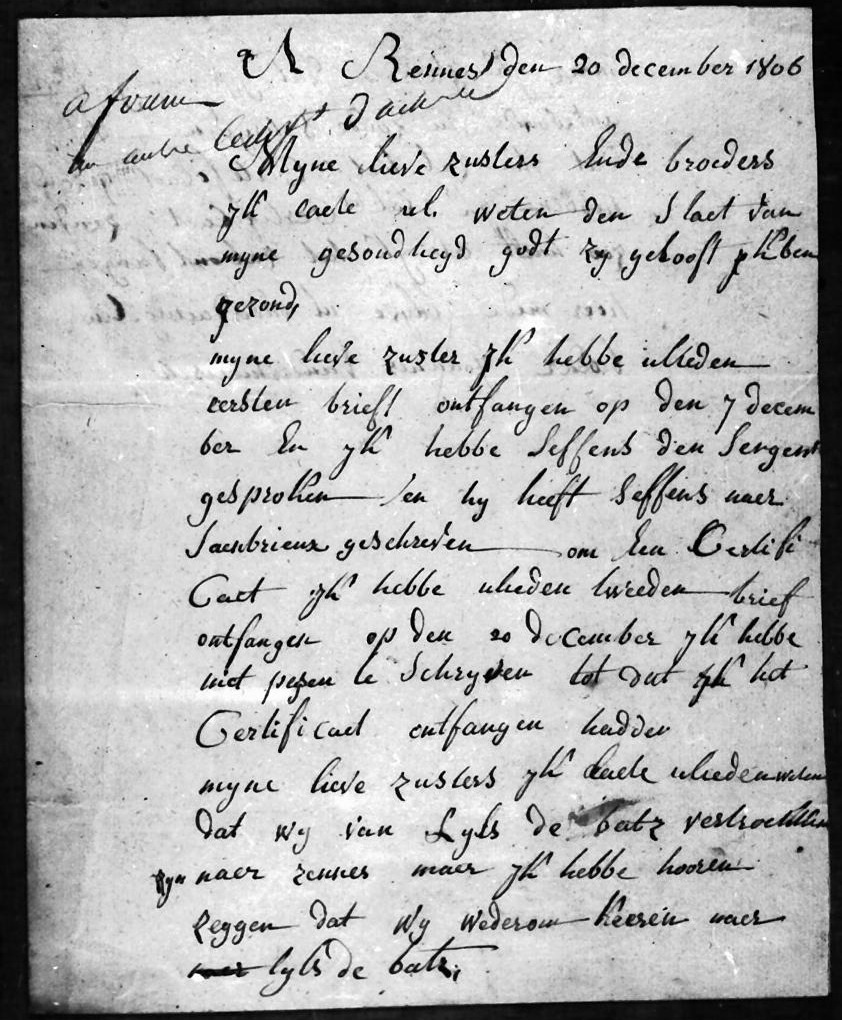 A Rennes den 20 december 1806
a fournir
un autre
Myne lieve zusters Ende broeders
yk laete ul. weten den staet van
myne gesondheyd godt zy gelooft yk ben
gezond,
myne lieve zuster yk hebbe ulieden
eersten brieft ontfangen op den 7 decem
ber En yk hebbe seffens den sergent
gesproken en hy heeft seffens naer
saenbrieux geschreven om Een Certifi
Caet yk hebbe ulieden tweeden brief
ontfangen op den 20 december yk hebbe
niet pezen te schryven tot dat yk het
Certificaet ontfangen hadde
myne lieve zusters yk laete ulieden weten
dat wy van Lyls de batz vertrocken
zyn naer rennes maer yk hebbe hooren
zeggen dat wy wederom keeren naer
lyls de batz,